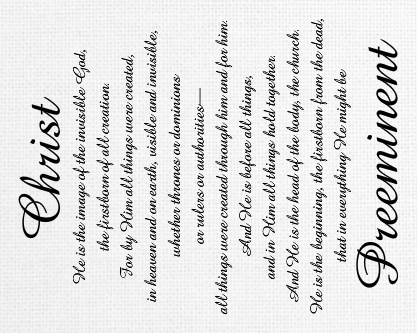 Christ
He is the image of the invisible God,
the firstborn of all creation.
For by Him all things were created,
in heaven and on earth, visible and invisible,
whether thrones or dominions
or rulers or authorities—
all things were created through him and for him.
And He is before all things,
and in Him all things hold together.
And He is the head of the body, the church.
He is the beginning, the firstborn from the dead,
that in everything He might be
Preeminent